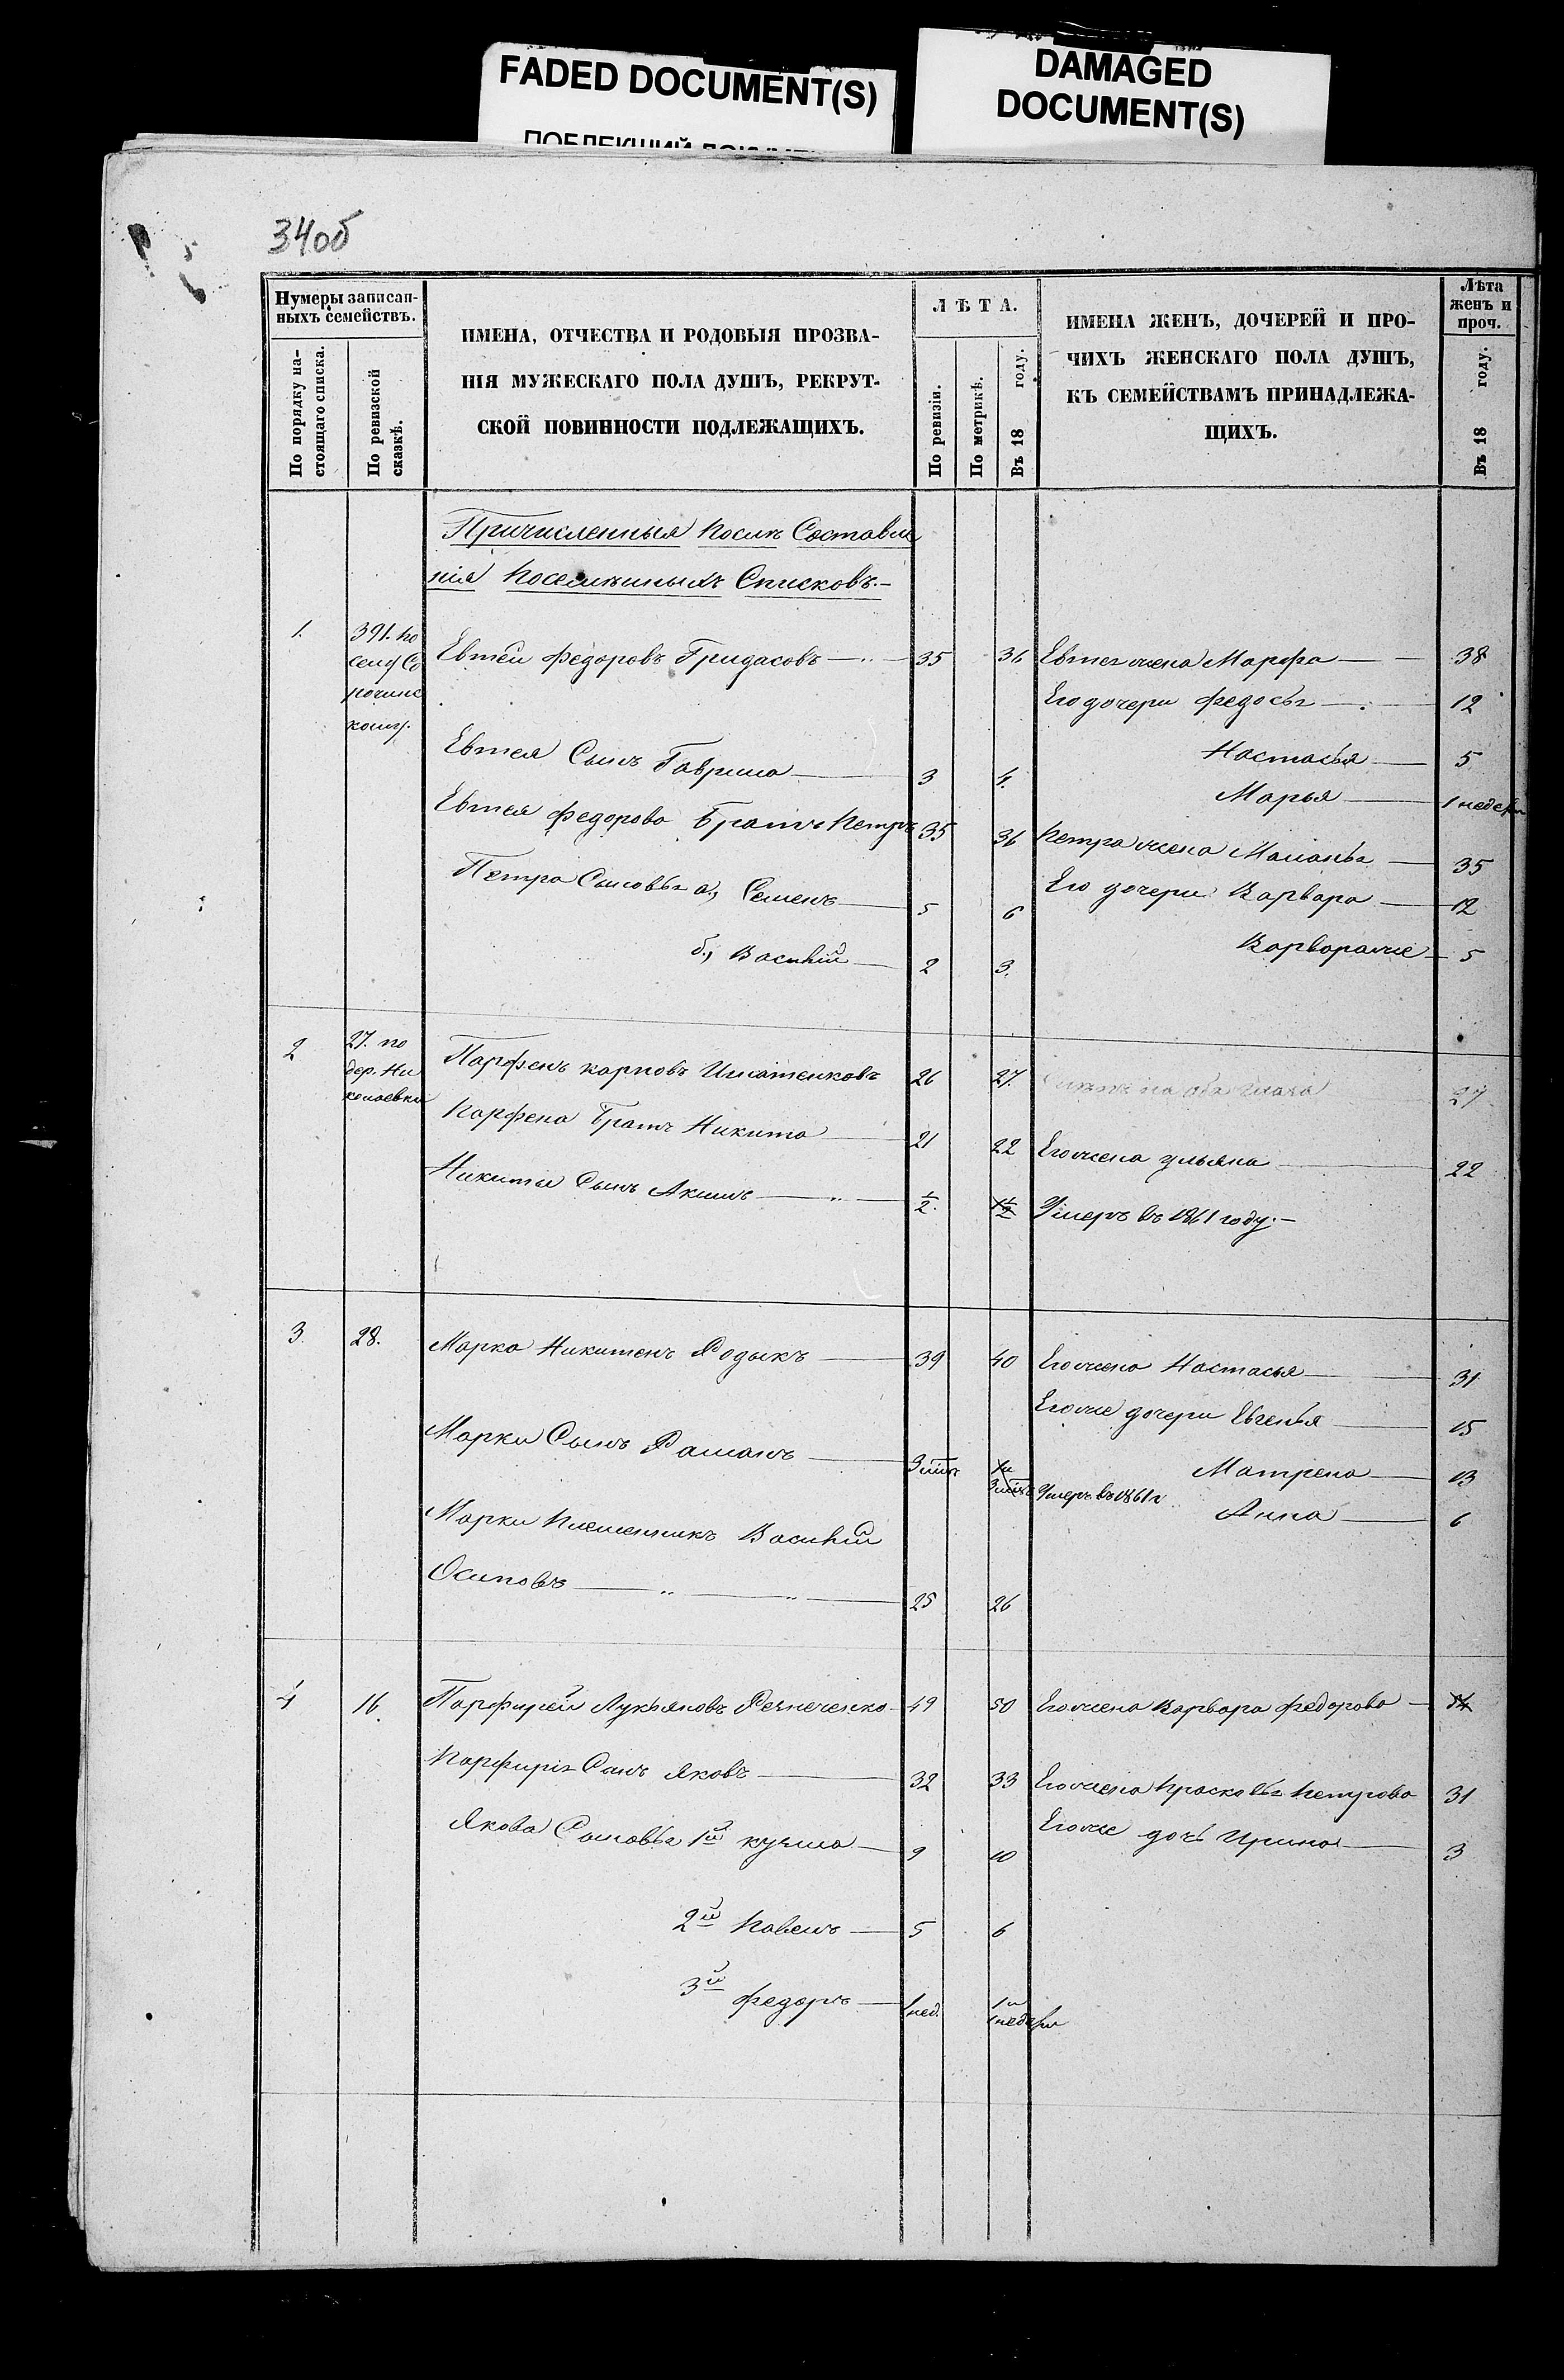 FADED DOCUMENT(S)
DAMAGED
DOCUMENT(S)
34об
Нумеры записан-
ныхъ семействъ.
По порядку на-
стоящаго списка.
По ревизской
сказкѣ.
ИМЕНА, ОТЧЕСТВА И РОДОВЫЯ ПРОЗВА-
НІЯ МУЖЕСКАГО ПОЛА ДУШЪ, РЕКРУТ-
СКОЙ ПОВИННОСТИ ПОДЛЕЖАЩИХЪ.
ЛѢТА.
По ревизіи.
По метрикѣ.
Въ 18 году.
ИМЕНА ЖЕНЪ, ДОЧЕРЕЙ И ПРО-
ЧИХЪ ЖЕНСКАГО ПОЛА ДУШЪ,
КЪ СЕМЕЙСТВАМЪ ПРИНАДЛЕЖА-
ЩИХЪ.
Лѣта
женъ и
проч.
Въ 18 году.
Причисленныя послѣ Составле
нія посемѣйныхъ Списковъ.-
1. 391. по Евтей Федоровъ Гридасовъ 35 36 Евтея жена Марфа 38
селу Со
Его дочери Федосья 12
рочинс
кому.
Евтея Сынъ Гаврила 3 4. Настасья 5
Марья 1 недели
Евтея Федорова Братъ Петръ 35 36 Петра жена Маланья 35
Петра Сыновья а, Семенъ 5 6 Его дочери Варвара 12
б, Василій 2 3. Варвара же 5
2 27. по Парфенъ Карповъ Игнатенковъ 26 27. 27
дер. Ни
колаевки
Парфена Братъ Никита 21 22 Его жена Ульяна 22
Никиты Сынъ Акимъ 1/2. 1 1/2 Умеръ въ 1861 году.-
3 28. Марко Никитенъ Родыкъ 39 40 Его жена Настасья 31
Его же дочери Евгенья 15
Марки Сынъ Романъ 3 мѣс Умеръ въ 1861 г Матрена 13
Анна 6
Марки Племенникъ Василій
Осиповъ 25 26
4 16. Парфирей Лукьяновъ Репеченко 49 50 Его жена Варвара Федорова 54
Парфирія Сынъ Яковъ 32 33 Его жена Прасковья Петрова 31
Якова Сыновья 1й Кузма 9 10 Его же дочь Ирина 3
2й Павелъ 5 6
3й Федоръ 1 нед. 1 и
1 недели